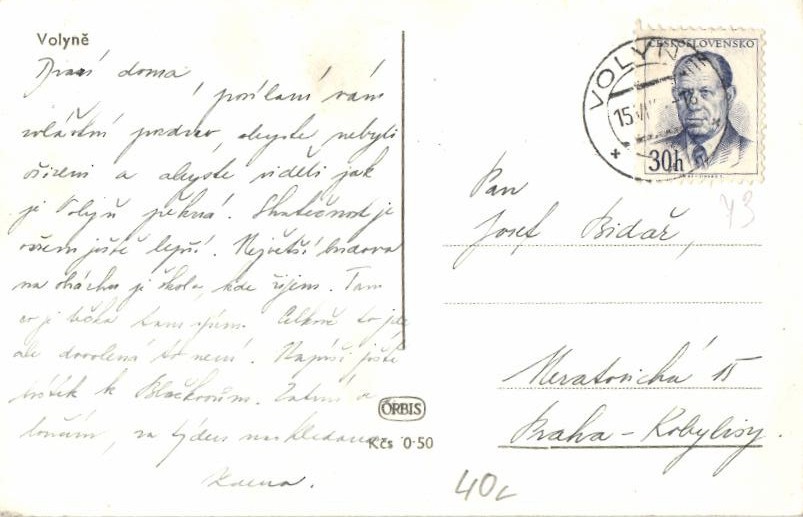 Volyně
Drazí doma
posílám vám
zvláštní pozdrav, abyste nebyli
ošizeni a abyste viděli jak
je Volyň pěkná. Skutečnost je
ovšem ještě lepší. Největší budova
na obrázku je škola, kde žijem. Tam
co je tečka tam spím. Celkově to jde
ale dovolená to není. Napíši ještě
lístek k Blačkovům. Zatím a
loučím, za týden nashledanou
ORBIS
Kčs 0·50
ČESKOSLOVENSKO
VOLYNĚ
15.VI
30h
Pan
Josef Bidař,
Neratovická 15
Praha - Kobylisy.
43
40c